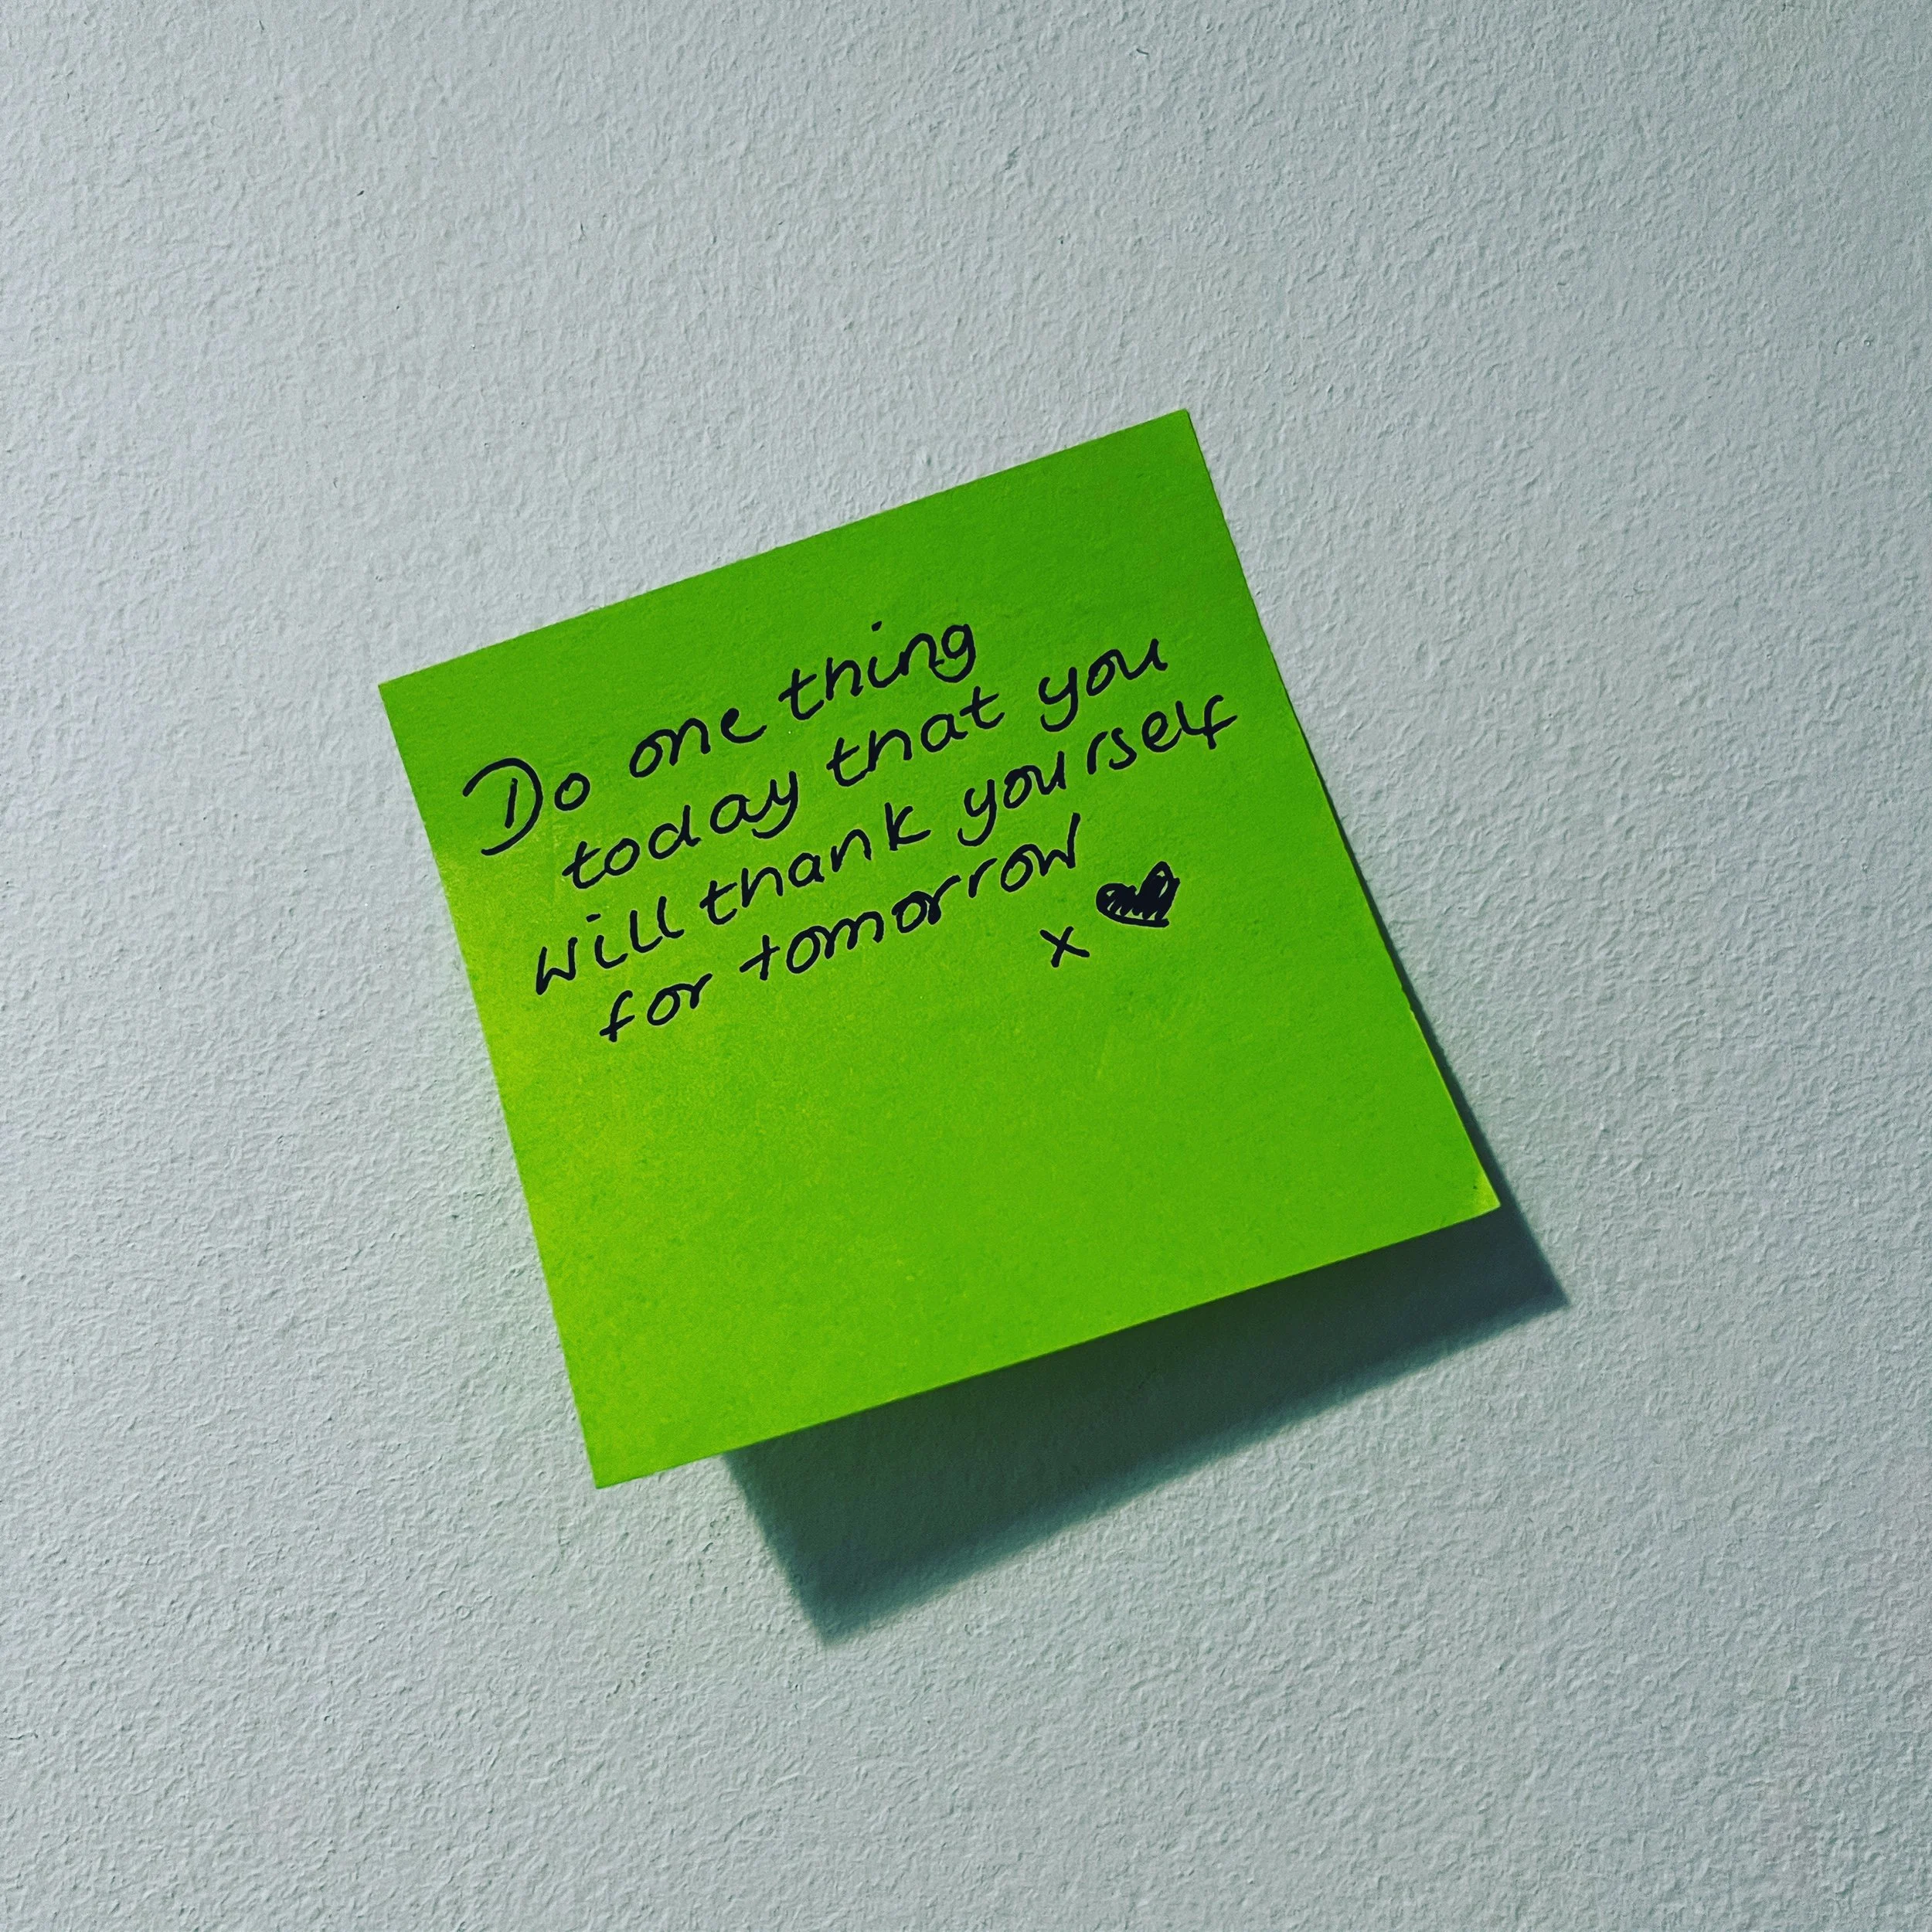 Do one thing
today that you
will thank yourself
for tomorrow
x ♥